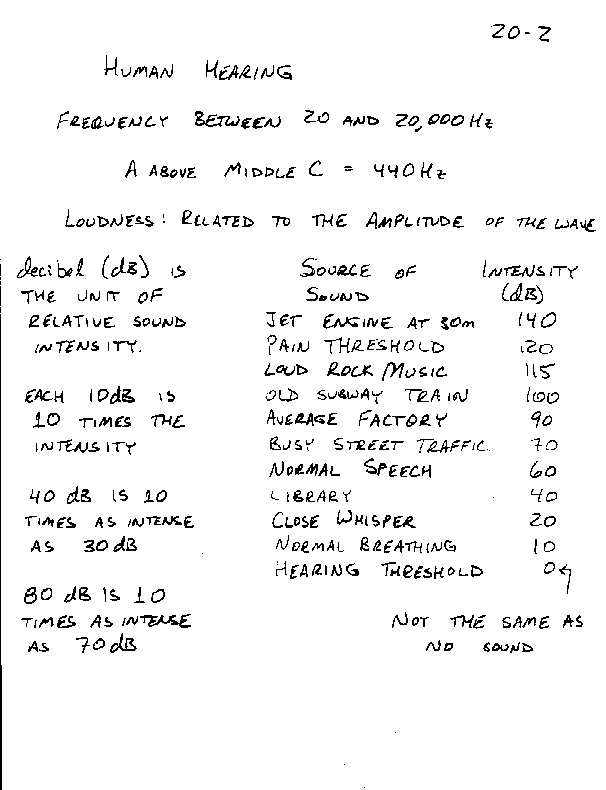 20-2
HUMAN HEARING
FREQUENCY BETWEEN 20 AND 20,000 Hz
A ABOVE MIDDLE C = 440 Hz
LOUDNESS: RELATED TO THE AMPLITUDE OF THE WAVE
decibel (dB) IS
THE UNIT OF
RELATIVE SOUND
INTENSITY.
EACH 10dB IS
10 TIMES THE
INTENSITY
40 dB IS 10
TIMES AS INTENSE
AS 30 dB
80 dB IS 10
TIMES AS INTENSE
AS 70 dB
SOURCE OF INTENSITY
SOUND (dB)
JET ENGINE AT 30m 140
PAIN THRESHOLD 120
LOUD ROCK MUSIC 115
OLD SUBWAY TRAIN 100
AVERAGE FACTORY 90
BUSY STREET TRAFFIC 70
NORMAL SPEECH 60
LIBRARY 40
CLOSE WHISPER 20
NORMAL BREATHING 10
HEARING THRESHOLD 0
NOT THE SAME AS
NO SOUND